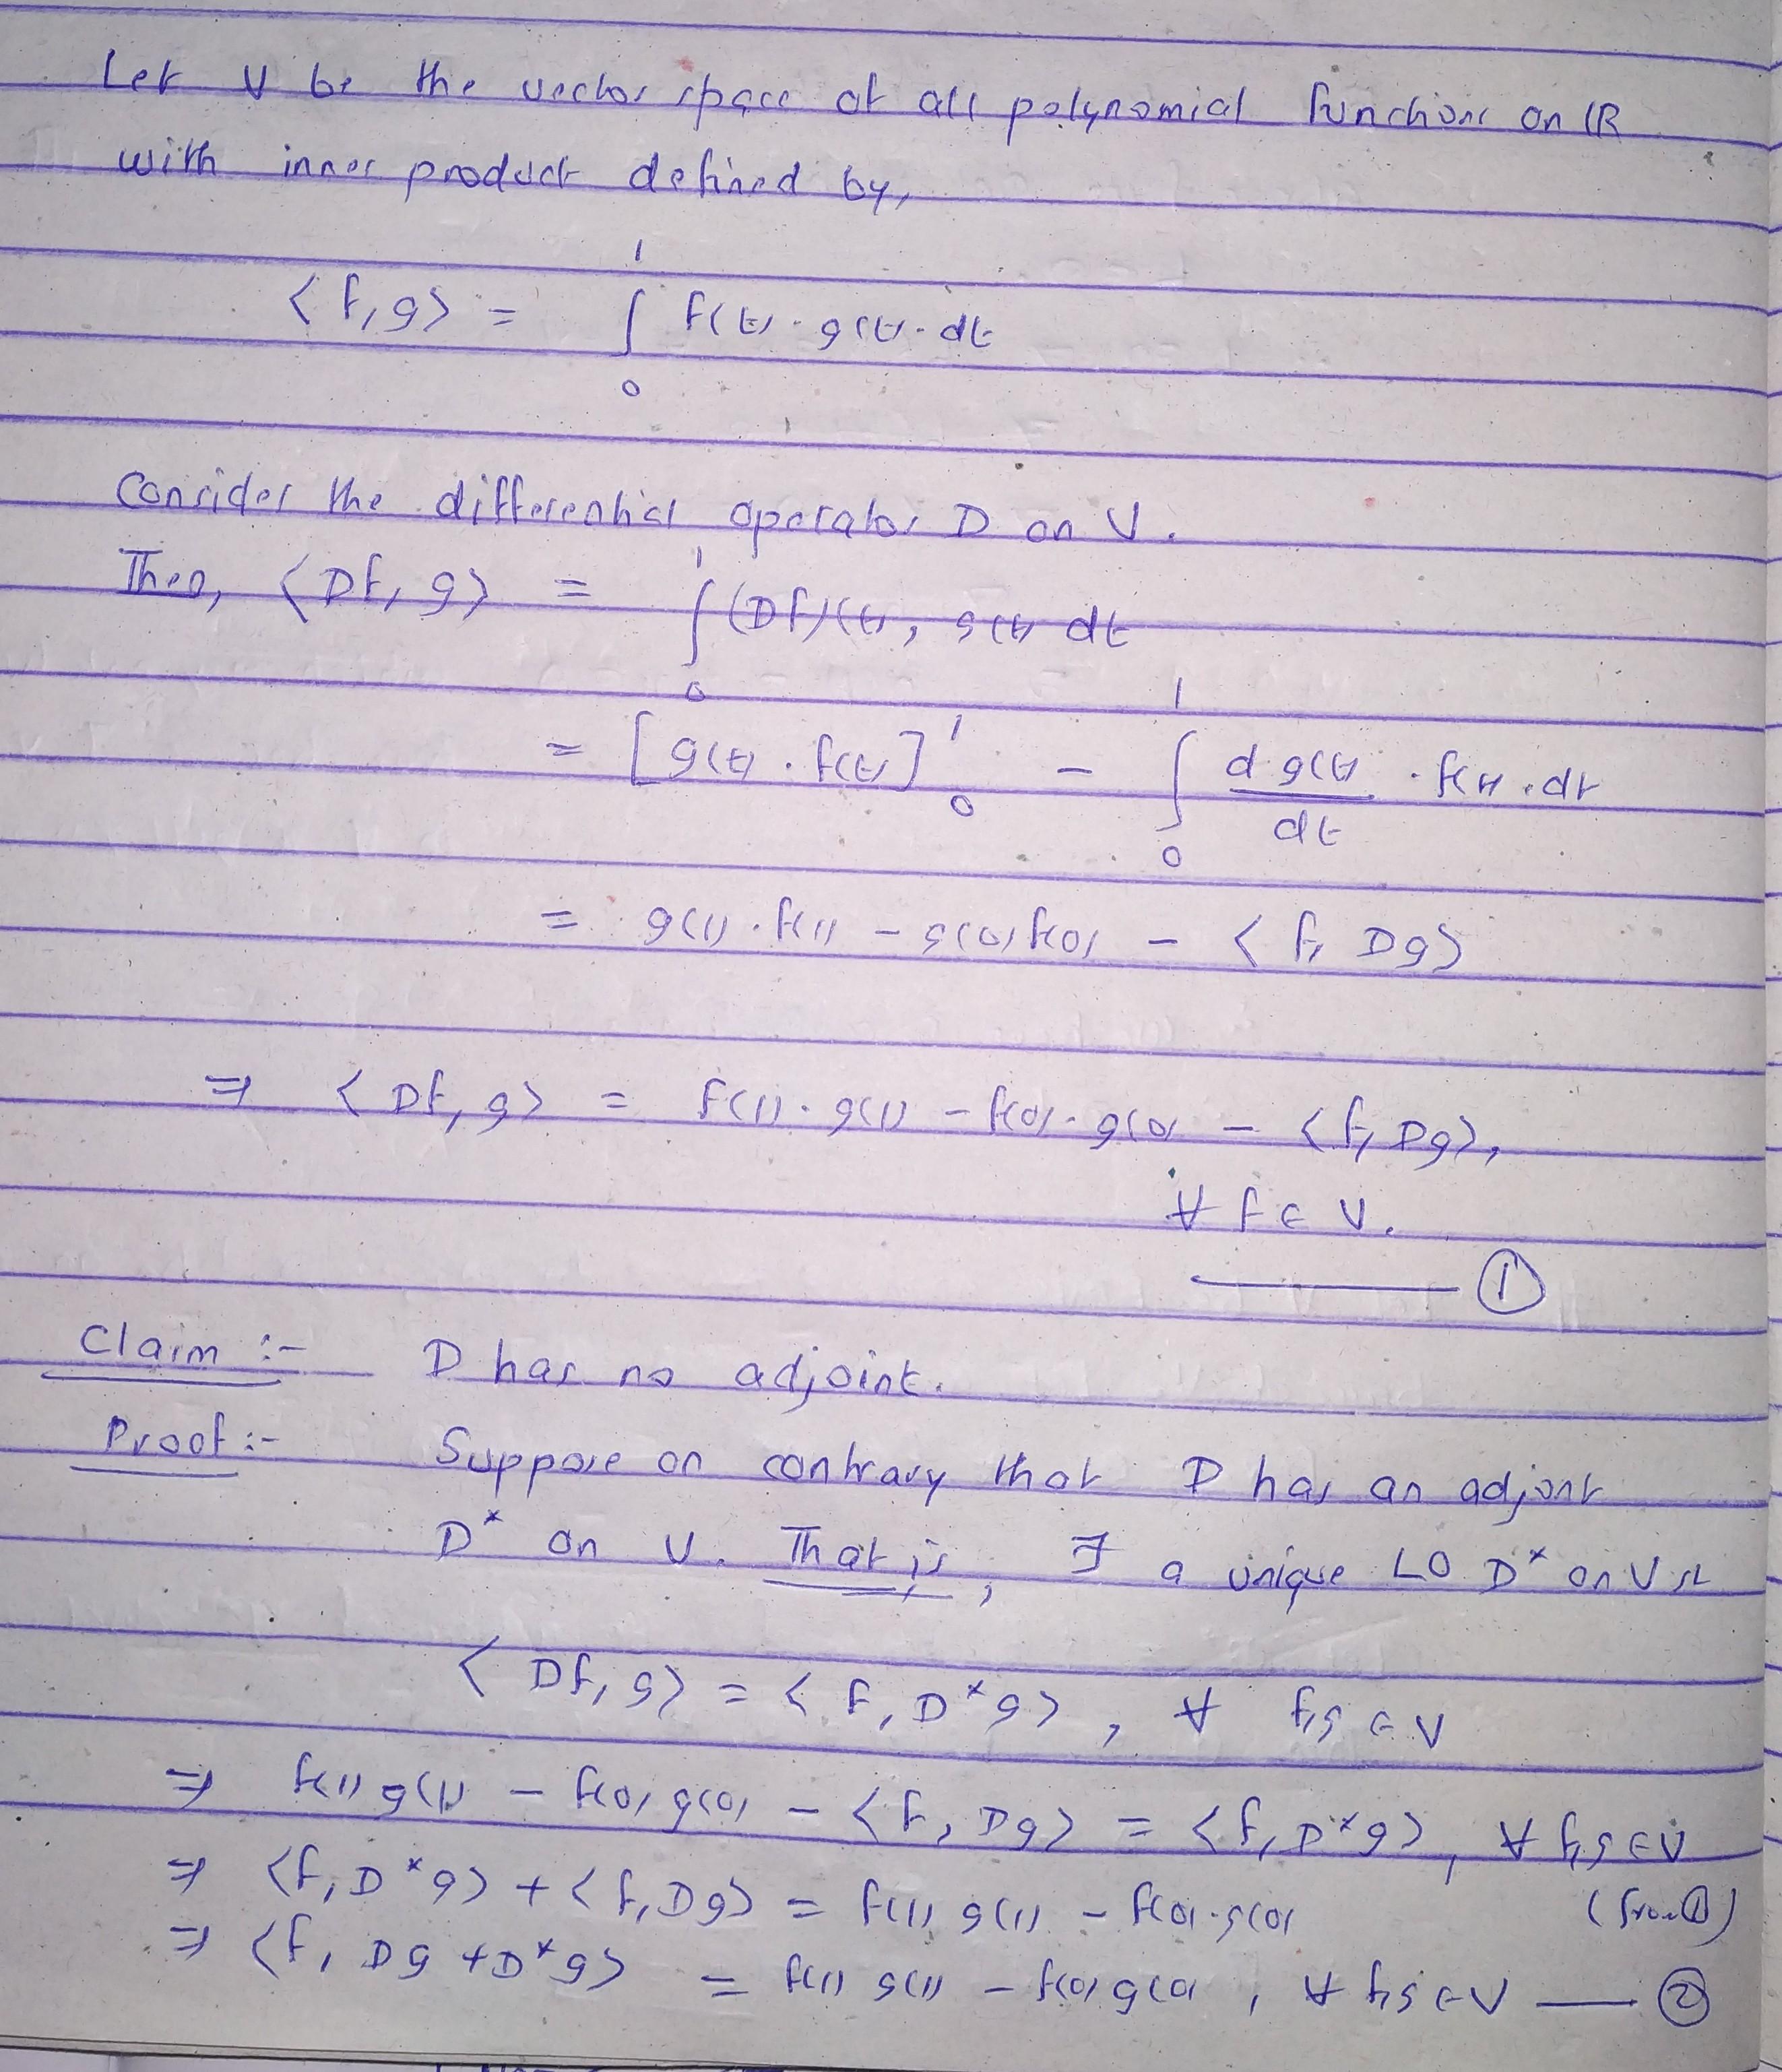 Let V be the vector space of all polynomial functions on ℝ
with inner product defined by,
⟨f,g⟩ = ∫₀¹ f(t)·g(t)·dt
Consider the differential operator D on V.
Then, ⟨Df, g⟩ = ∫₀¹ (Df)(t), g(t) dt
= [g(t)·f(t)]₀¹ − ∫₀¹ d g(t)/dt · f(t)·dt
= g(1)·f(1) − g(0)f(0) − ⟨f, Dg⟩
⇒ ⟨Df, g⟩ = f(1)·g(1) − f(0)·g(0) − ⟨f, Dg⟩,
∀ f ∈ V.
——— ①
Claim :- D has no adjoint.
Proof :- Suppose on contrary that D has an adjoint
D* on V. That is, ∃ a unique LO D* on V st
⟨Df, g⟩ = ⟨f, D*g⟩, ∀ f,g ∈ V
⇒ f(1)g(1) − f(0)g(0) − ⟨f, Dg⟩ = ⟨f, D*g⟩, ∀ f,g ∈ V
(from ①)
⇒ ⟨f, D*g⟩ + ⟨f, Dg⟩ = f(1)g(1) − f(0)·g(0)
⇒ ⟨f, Dg + D*g⟩ = f(1)g(1) − f(0)g(0), ∀ f,g ∈ V —— ②